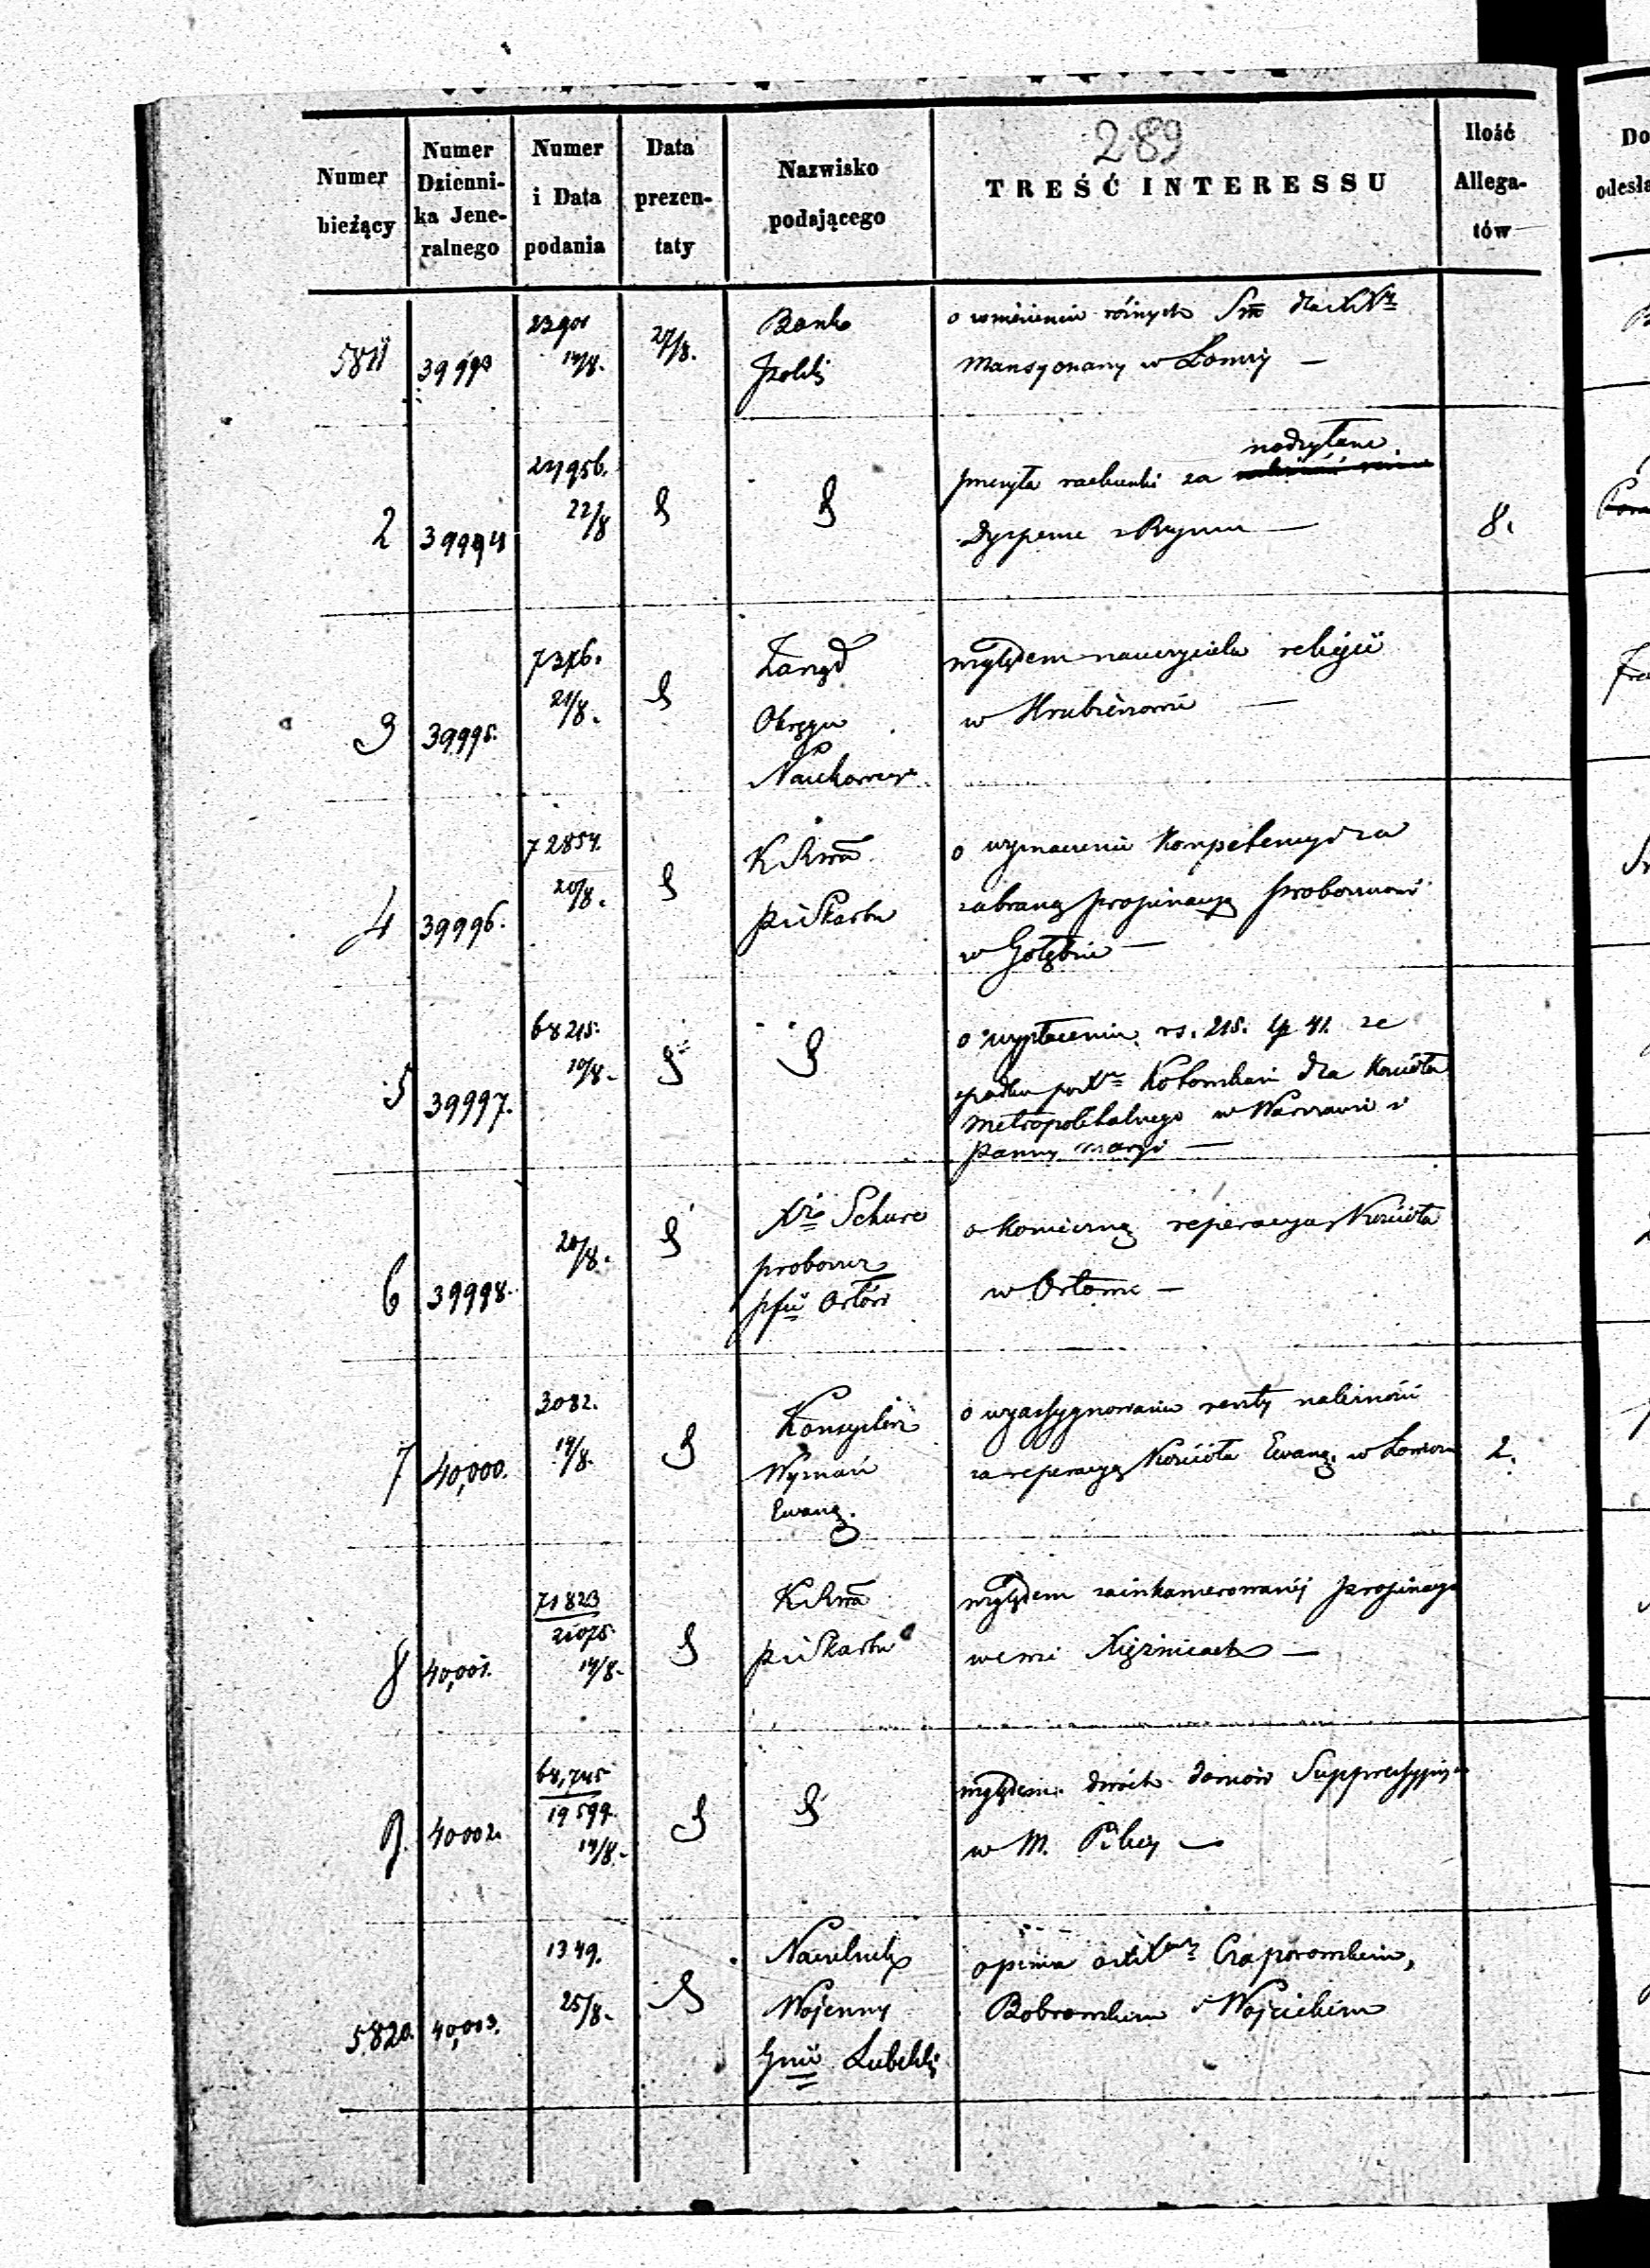 289
Numer bieżący
Numer Dzienni-ka Jene-ralnego
Numer i Data podania
Data prezen-taty
Nazwisko podającego
TREŚĆ INTERESSU
Ilość Allega-tów
5811 39993 23901 14/8. 27/8. Bank Polski
o wniesieniu różnych
Mansyonarzy w Łomży —
2 39994 24956. 22/8
przesyła rachunki za nadsyłane
Dyspense z Rzymu — 8.
3 39995. 7376. 21/8. Zarząd
Okręgu
Naukowego
względem nauczyciela religii
w Hrubieszowie —
4 39996. 72854. 20/8. K Rwa
Pri Skarbu
o wyznaczenie Kompetencyi za
zabraną propinacyą Proboszczowi
w Gołębiu —
5 39997. 68215. 10/8.
o wypłacenie rs. 215. kp 41. ze
spadku po Kotowskim dla Kościoła
Metropolitalnego w Warszawie i
Panny Maryi —
6 39998. 20/8. Schurc
proboszcz
pfii Orłów
o konieczną reperacyą Kościoła
w Orłowie —
7 40,000. 3082. 19/8. Konsystorz
Wyznań
Ewang.
o wyassygnowanie reszty należności
za reperacyą Kościoła Ewang. w Łomży 2.
8 40,001. 71823 21075. 14/8. K Rwa
Pri Skarbu
względem zainkamerowanej propinacyi
we wsi Xiężnicach —
9. 40002. 68,745 19599. 14/8.
względem dwóch domów Suppressyjnych
w M. Pilicy —
5820. 40,003. 1349. 25/8. Naczelnik
Wojenny
Gnii Lubelskiej
opinia o Czaporowskim,
Bobrowskim i Wojcickim
Do
odesła